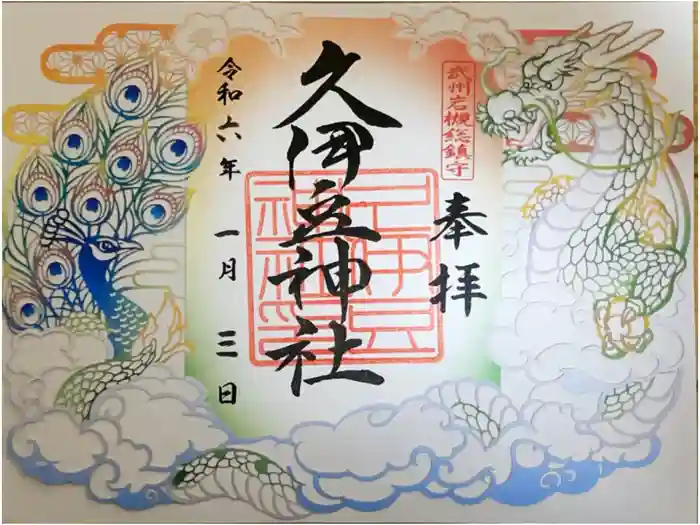 武州岩槻総鎮守
奉拝
久伊豆神社
令和六年 一月 三日